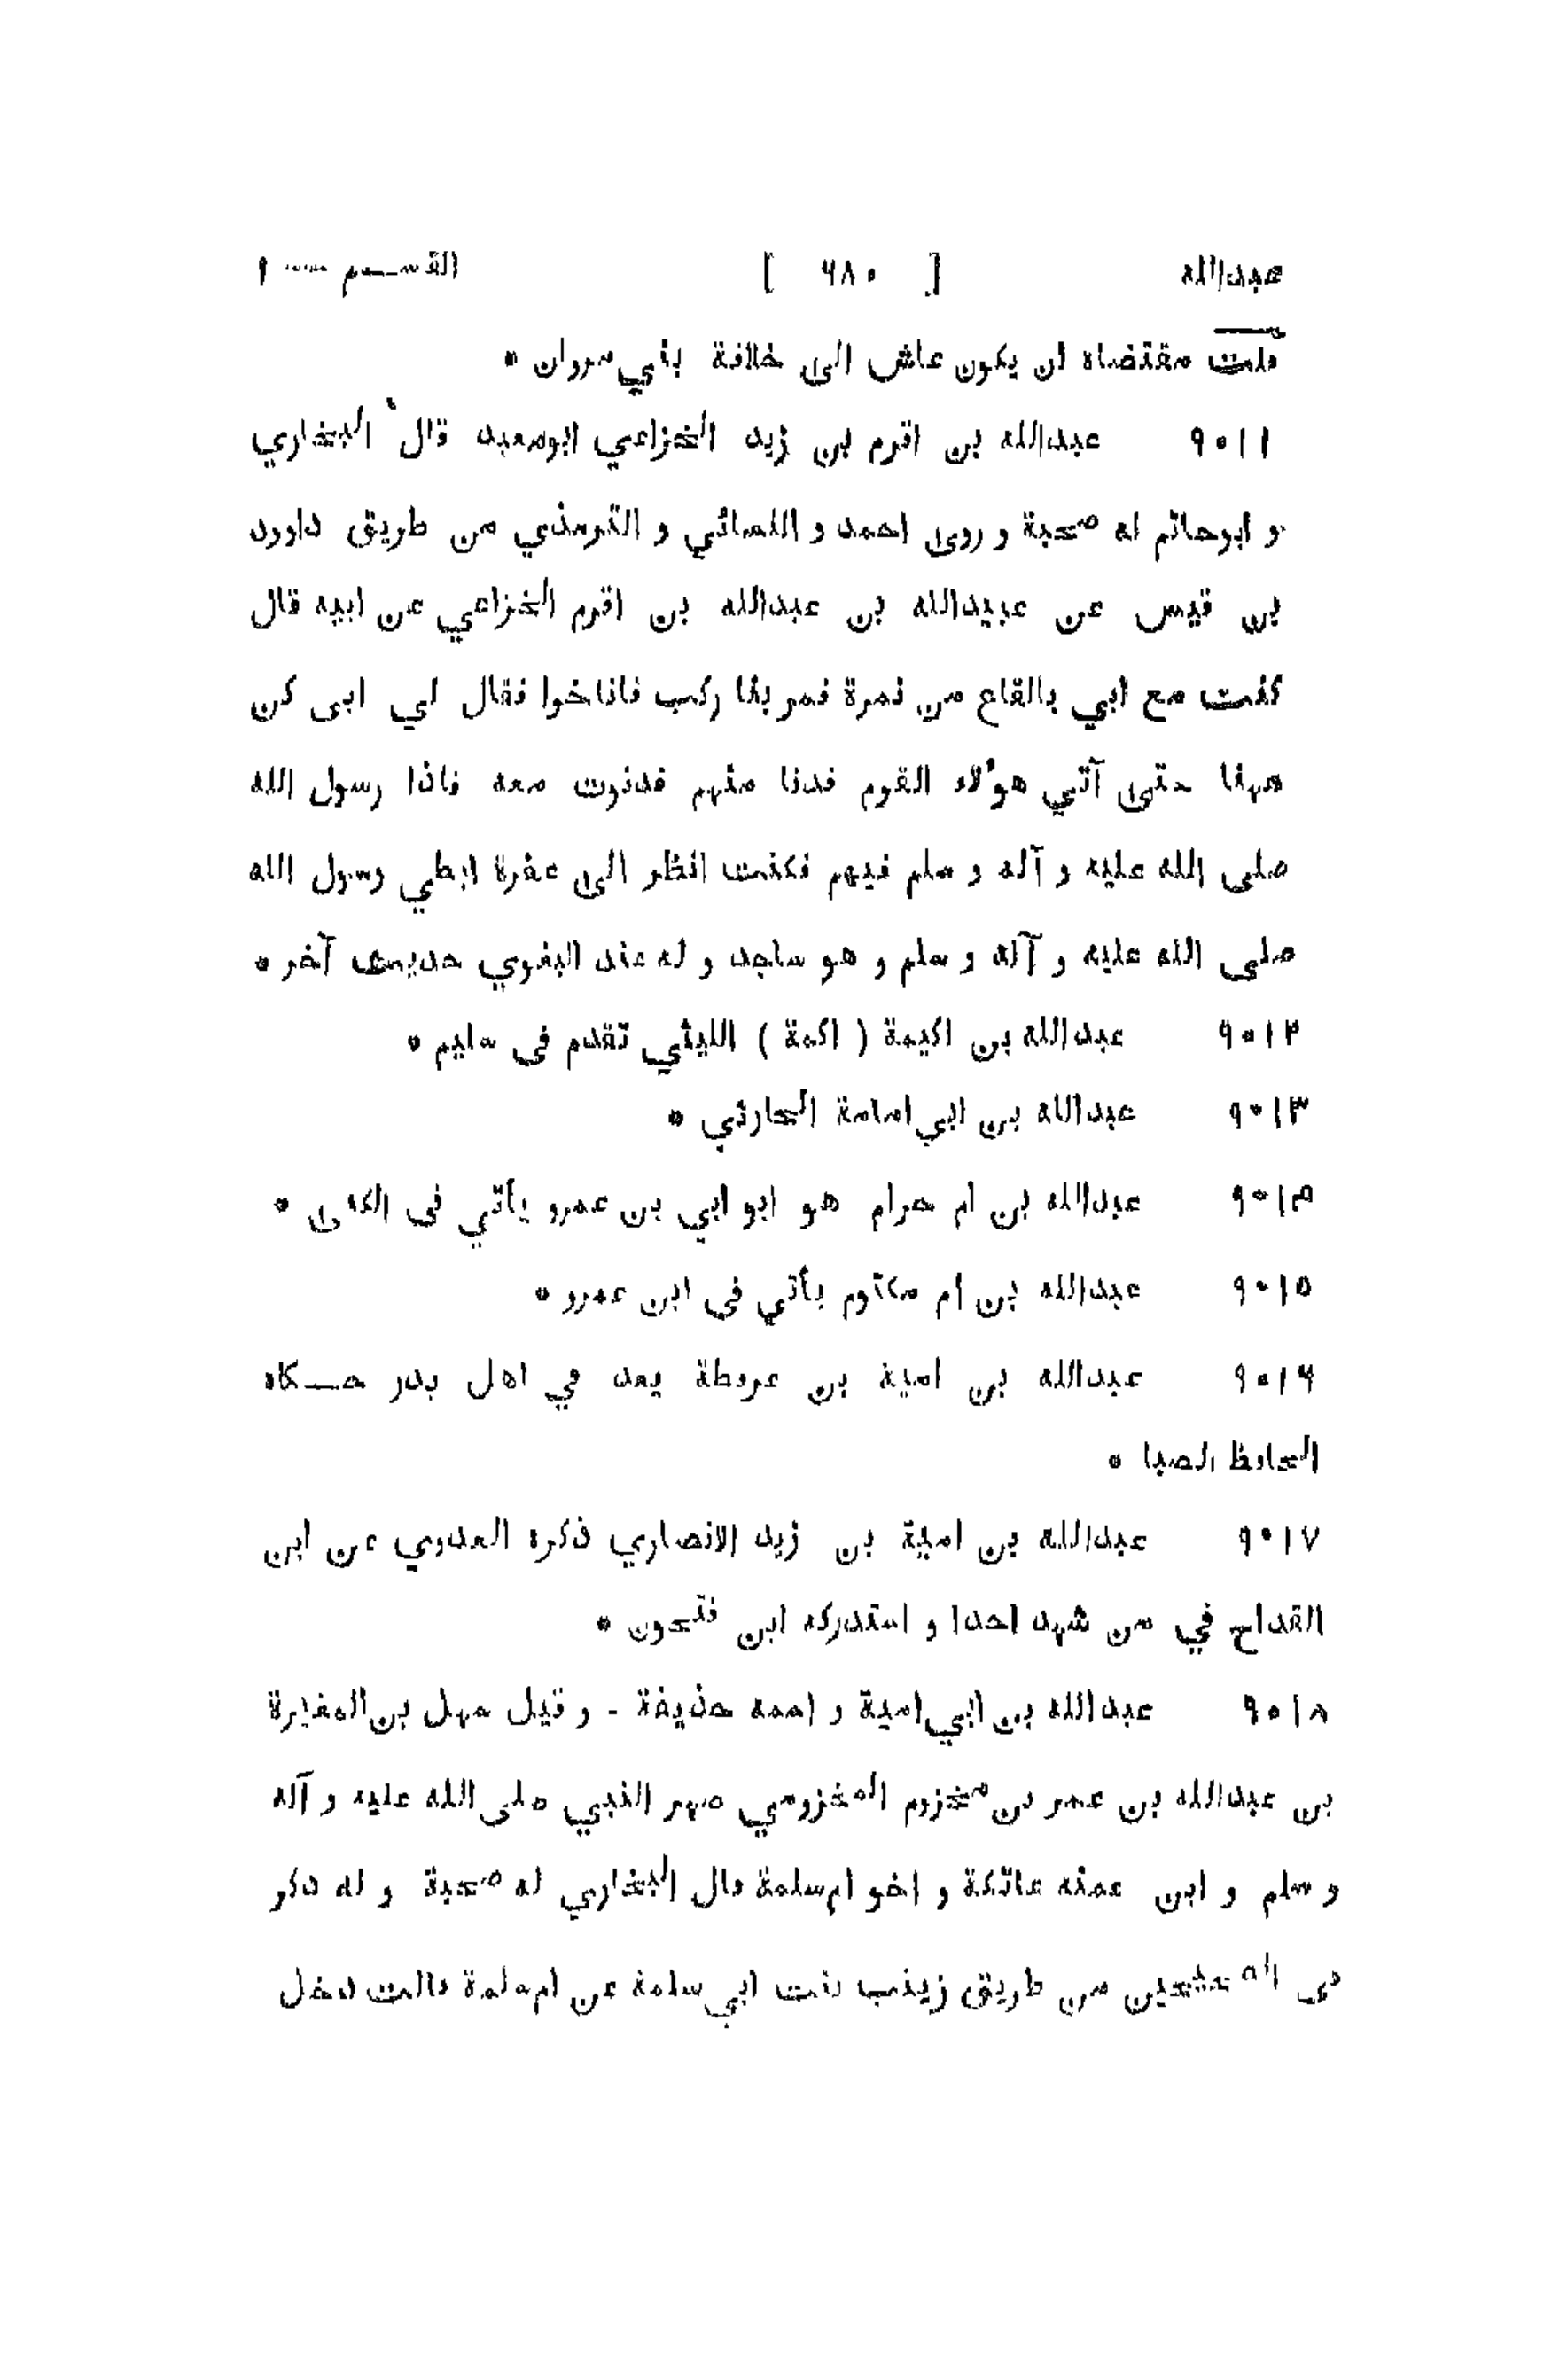 عبدالله [ ٦٨٠ ] القسم — ١
قلت مقتضاه ان يكون عاش الى خلافة بني مروان *
٩٠١١ عبدالله بن اقرم بن زيد الخزاعي ابومعبد قال البخاري
و ابوحاتم له صحبة و روى احمد و النسائي و الترمذي من طريق داود
بن قيس عن عبيدالله بن عبدالله بن اقرم الخزاعي عن ابيه قال
كنت مع ابي بالقاع من نمرة فمر بنا ركب فاناخوا فقال لي ابى كن
ههنا حتى آتي هؤلاء القوم فدنا منهم فدنوت معه فاذا رسول الله
صلى الله عليه و آله و سلم فيهم فكنت انظر الى عفرة ابطي رسول الله
صلى الله عليه و آله و سلم و هو ساجد و له عند البغوي حديث آخر *
٩٠١٢ عبدالله بن اكيمة ( اكمة ) الليثي تقدم فى سليم *
٩٠١٣ عبدالله بن ابي امامة الحارثي *
٩٠١٤ عبدالله بن ام حرام هو ابو ابي بن عمرو يأتي فى الكنى *
٩٠١٥ عبدالله بن ام مكتوم يأتي فى ابن عمرو *
٩٠١٦ عبدالله بن امية بن عرفطة يعد في اهل بدر حكاه
الحافظ الضيا *
٩٠١٧ عبدالله بن امية بن زيد الانصاري ذكره العدوي عن ابن
القداح في من شهد احدا و استدركه ابن فتحون *
٩٠١٨ عبدالله بن ابي امية و اسمه حذيفة - و قيل سهل بن المغيرة
بن عبدالله بن عمر بن مخزوم المخزومي صهر النبي صلى الله عليه و آله
و سلم و ابن عمته عاتكة و اخو ام سلمة قال البخاري له صحبة و له ذكر
فى الصحيحين من طريق زينب بنت ابي سلمة عن ام سلمة قالت دخل